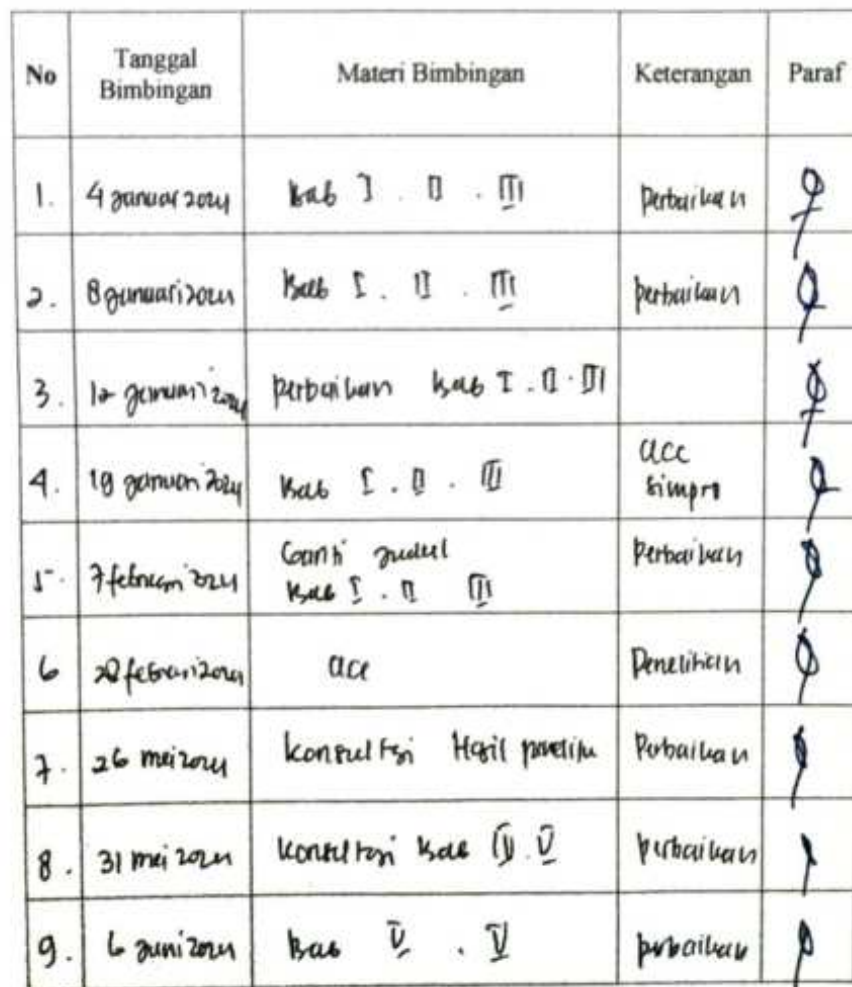 No Tanggal Bimbingan Materi Bimbingan Keterangan Paraf
1. 4 Januari 2024 Bab I . II . III Perbaikan
2. 8 Januari 2024 Bab I . II . III perbaikan
3. 12 Januari 2024 perbaikan Bab I . II . III
4. 19 Januari 2024 Bab I . II . III acc Simpro
5. 7 februari 2024 Ganti Judul Bab I . II III Perbaikan
6 28 februari 2024 acc Penelitian
7. 26 mei 2024 konsultasi Hasil Perbaikan
8. 31 mei 2024 konsultasi Bab IV . V perbaikan
9. 6 Juni 2024 Bab . V perbaikan